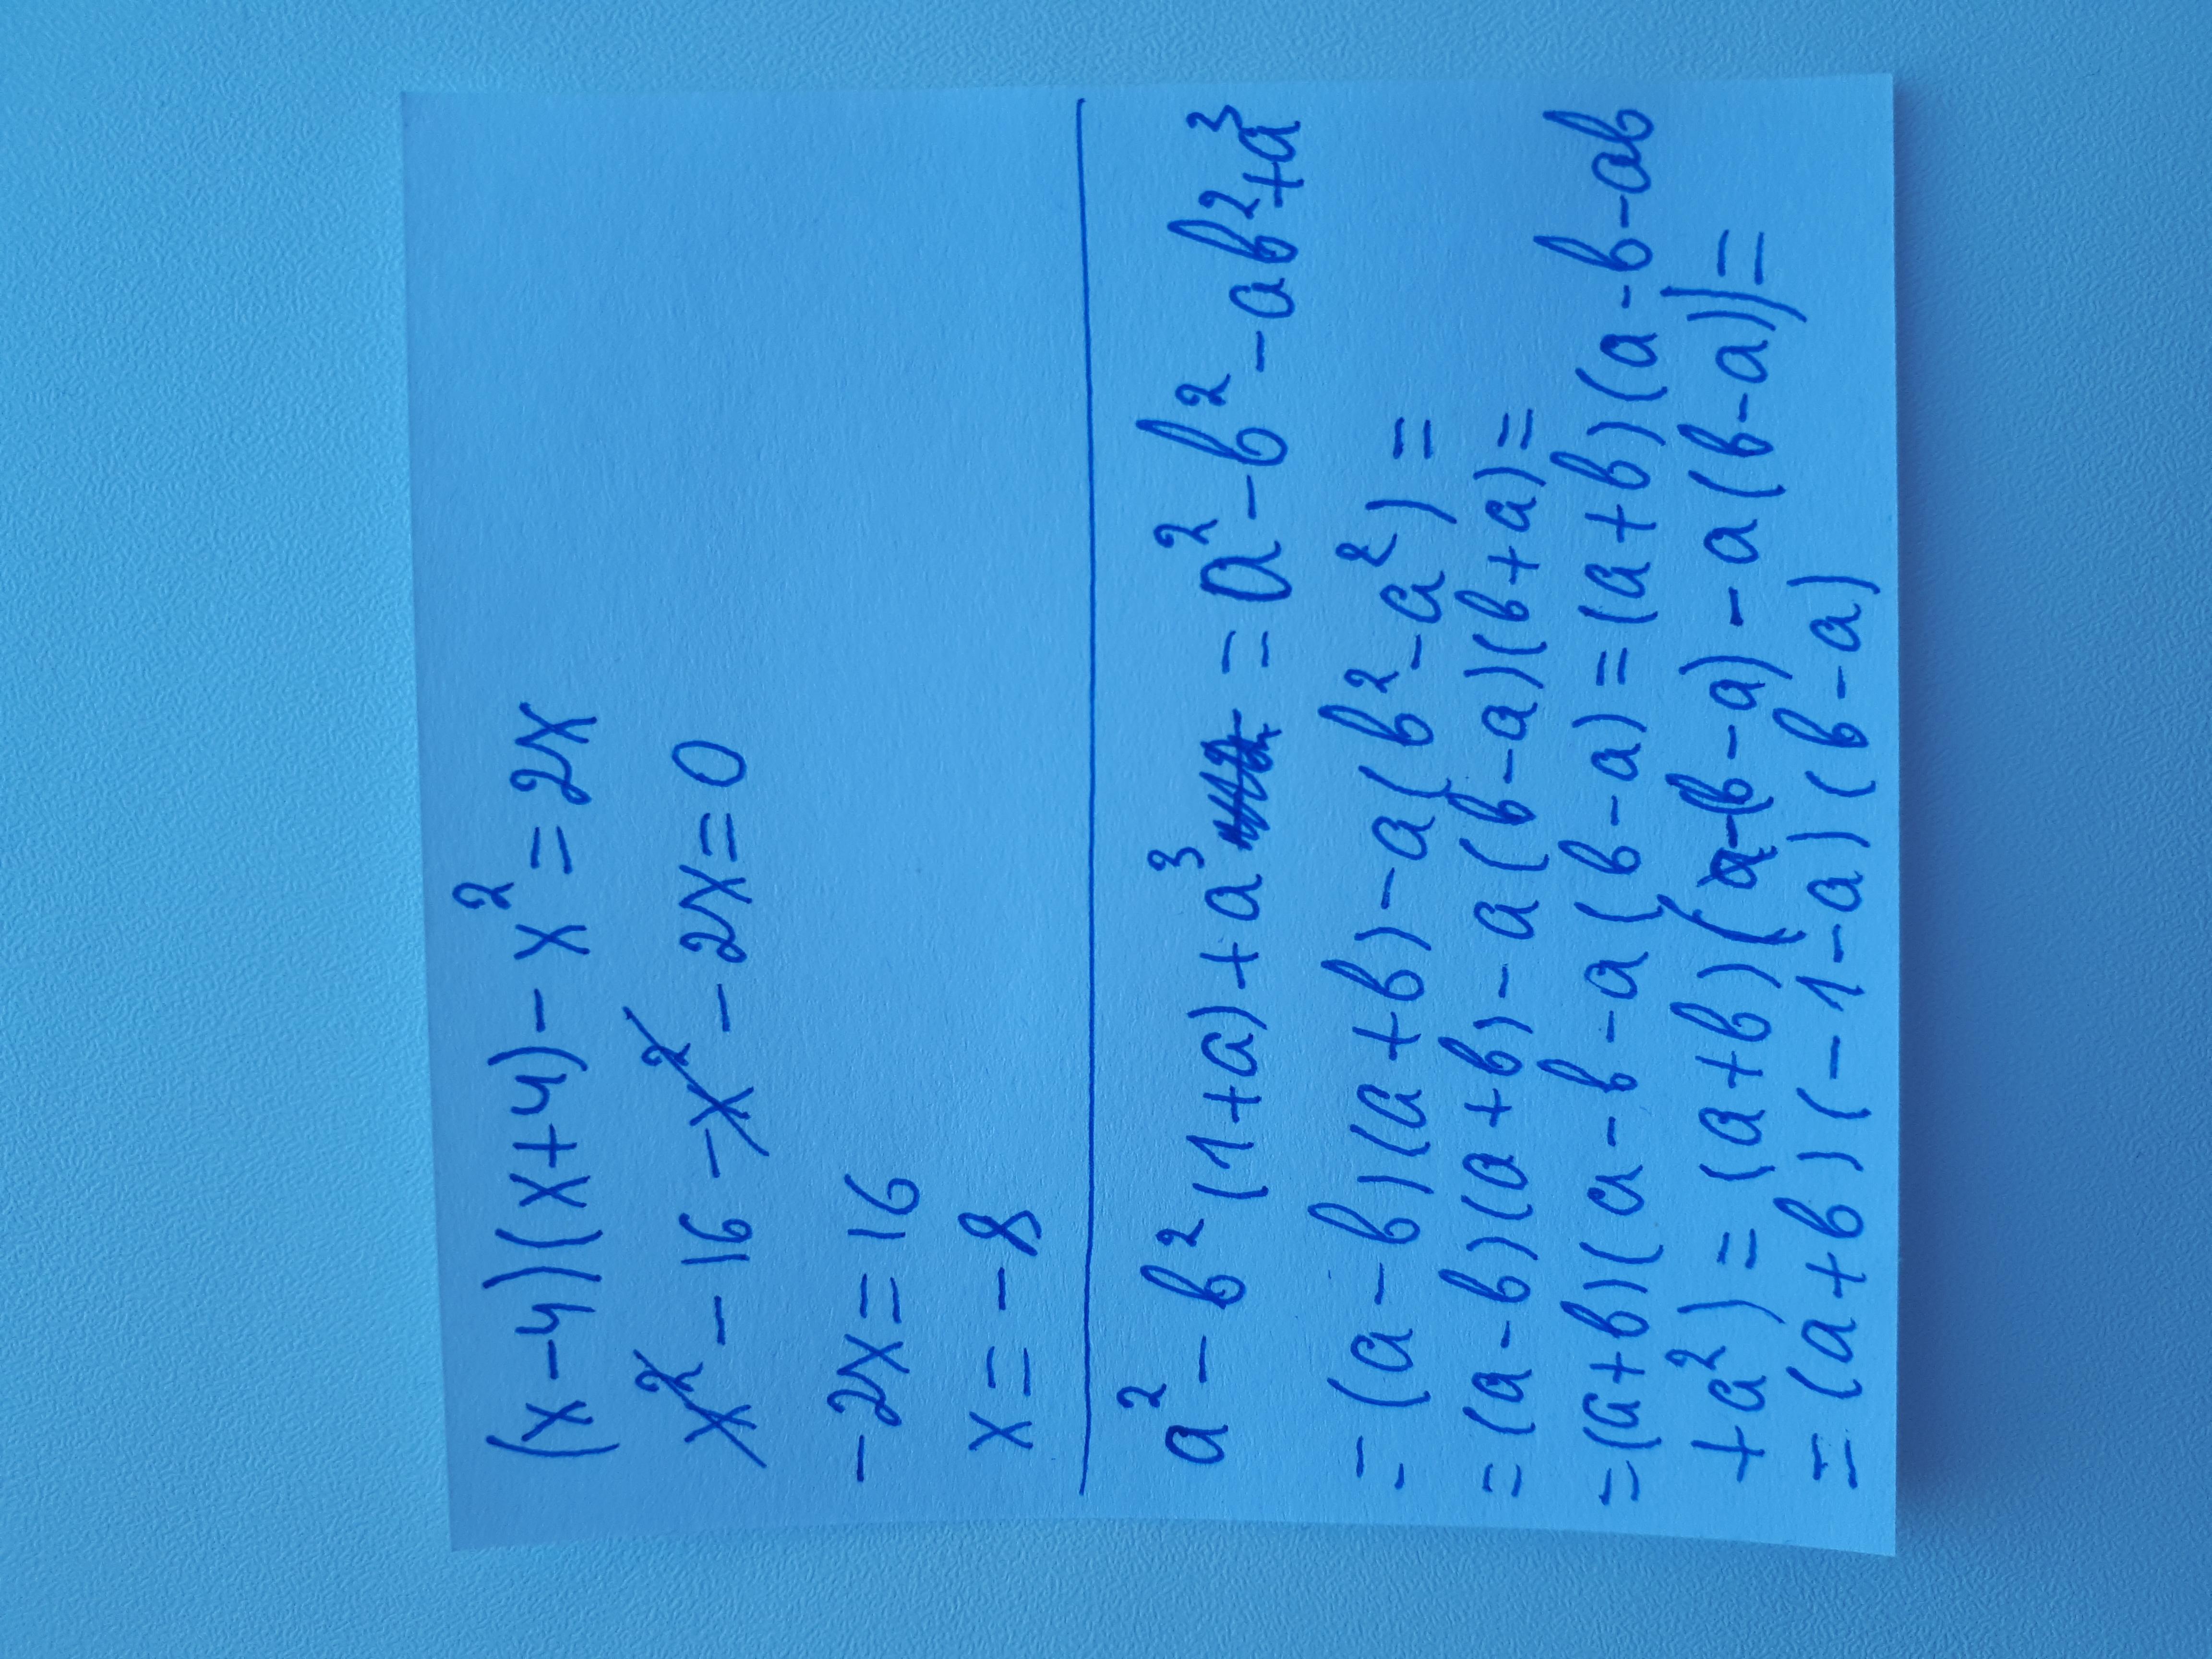 (x-4)(x+4)-x²=2x
x²-16-x²-2x=0
-2x=16
x=-8
a²-b²(1+a)+a³=a²-b²-ab²+a³
=(a-b)(a+b)-a(b²-a²)=
=(a-b)(a+b)-a(b-a)(b+a)=
=(a+b)(a-b-a(b-a)=(a+b)(a-b-ab
+a²)=(a+b)(-(b-a)-a(b-a))=
=(a+b)(-1-a)(b-a)